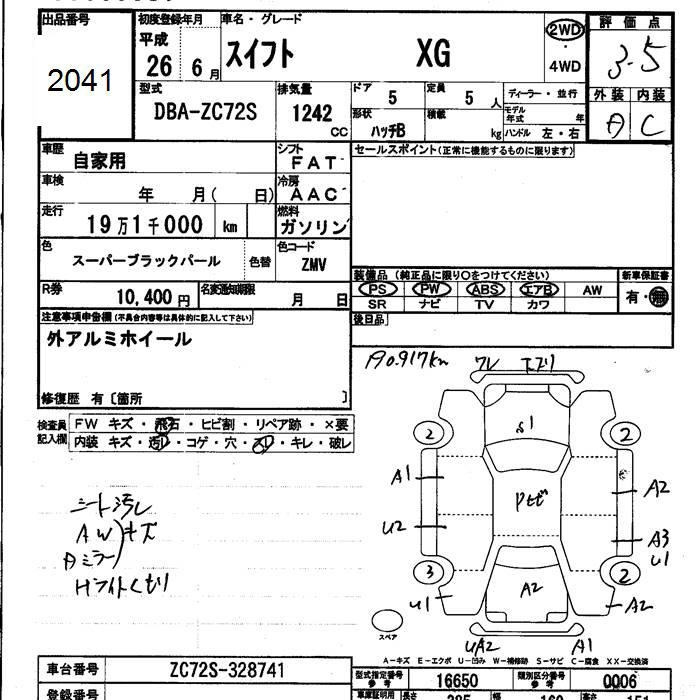 出品番号
2041
初度登録年月
平成
26 6月
車名・グレード
スイフト XG
2WD
・
4WD
評価点
3.5
外装 内装
A C
型式
DBA-ZC72S
排気量
1242
CC
ドア
5
定員
5 人
形状
ハッチB
積載
kg
ディーラー・並行
モデル年式 年
ハンドル 左・右
車歴
自家用
シフト
FAT
車検
年 月( 日)
冷房
AAC
走行
19万1千000 km
燃料
ガソリン
色
スーパーブラックパール
色替
色コード
ZMV
R券
10,400円
名変通知期限
月 日
セールスポイント(正常に機能するものに限ります)
装備品 (純正品に限り○をつけてください)
PS PW ABS エアB AW
SR ナビ TV カワ
新車保証書
有・無
後日品
注意事項申告欄(不具合内容等は具体的に記入して下さい)
外アルミホイール
修復歴 有〔箇所 〕
検査員
記入欄
FW キズ・飛石・ヒビ割・リペア跡・×要
内装 キズ・汚・コゲ・穴・スレ・キレ・破レ
190.917km
ワレ
S1
2 2
A1
Pセビ
A2
U2
A3
U1
3 2
U1
A2
A2
UA2
A1
シート汚レ
AW)キズ
Aミラー
Hライトくもり
スペア
A-キズ E-エクボ U-凹み W-補修跡 S-サビ C-腐食 XX-交換済
車台番号
ZC72S-328741
型式指定番号
参考
16650
類別区分番号
参考
0006
登録番号
車庫証明用
長さ
385
幅
169
高さ
151